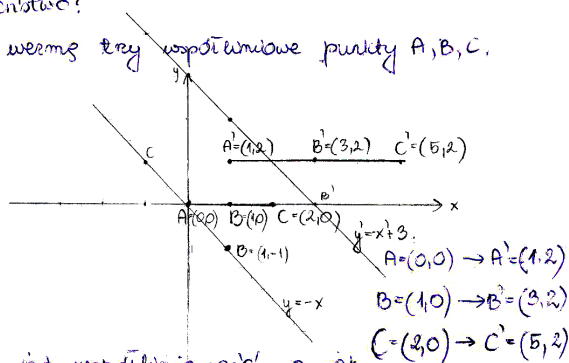 wezmę trzy współliniowe punkty A, B, C.
y
C
A'=(1,2) B'=(3,2) C'=(5,2)
A=(0,0) B=(1,0) C=(2,0) B' x
y'=-x'+3
B=(1,-1)
y=-x
A=(0,0) → A'=(1,2)
B=(1,0) → B'=(3,2)
C=(2,0) → C'=(5,2)